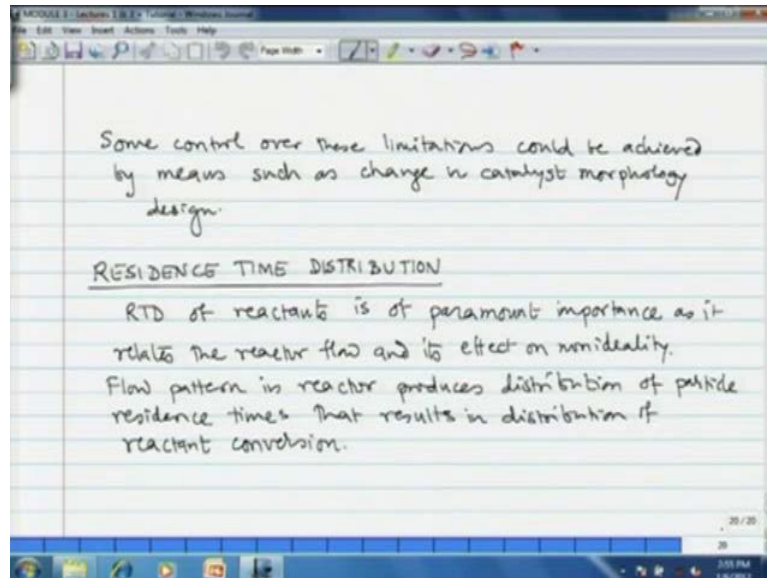 MODULE 3 - Lectures 1 & 2 + Tutorial - Windows Journal
File Edit View Insert Actions Tools Help
Page Width
Some control over these limitations could be achieved
by means such as change in catalyst morphology
design.
RESIDENCE TIME DISTRIBUTION
RTD of reactants is of paramount importance as it
relates the reactor flow and its effect on nonideality.
Flow pattern in reactor produces distribution of particle
residence times that results in distribution of
reactant conversion.
20 / 20
20
3:55 PM